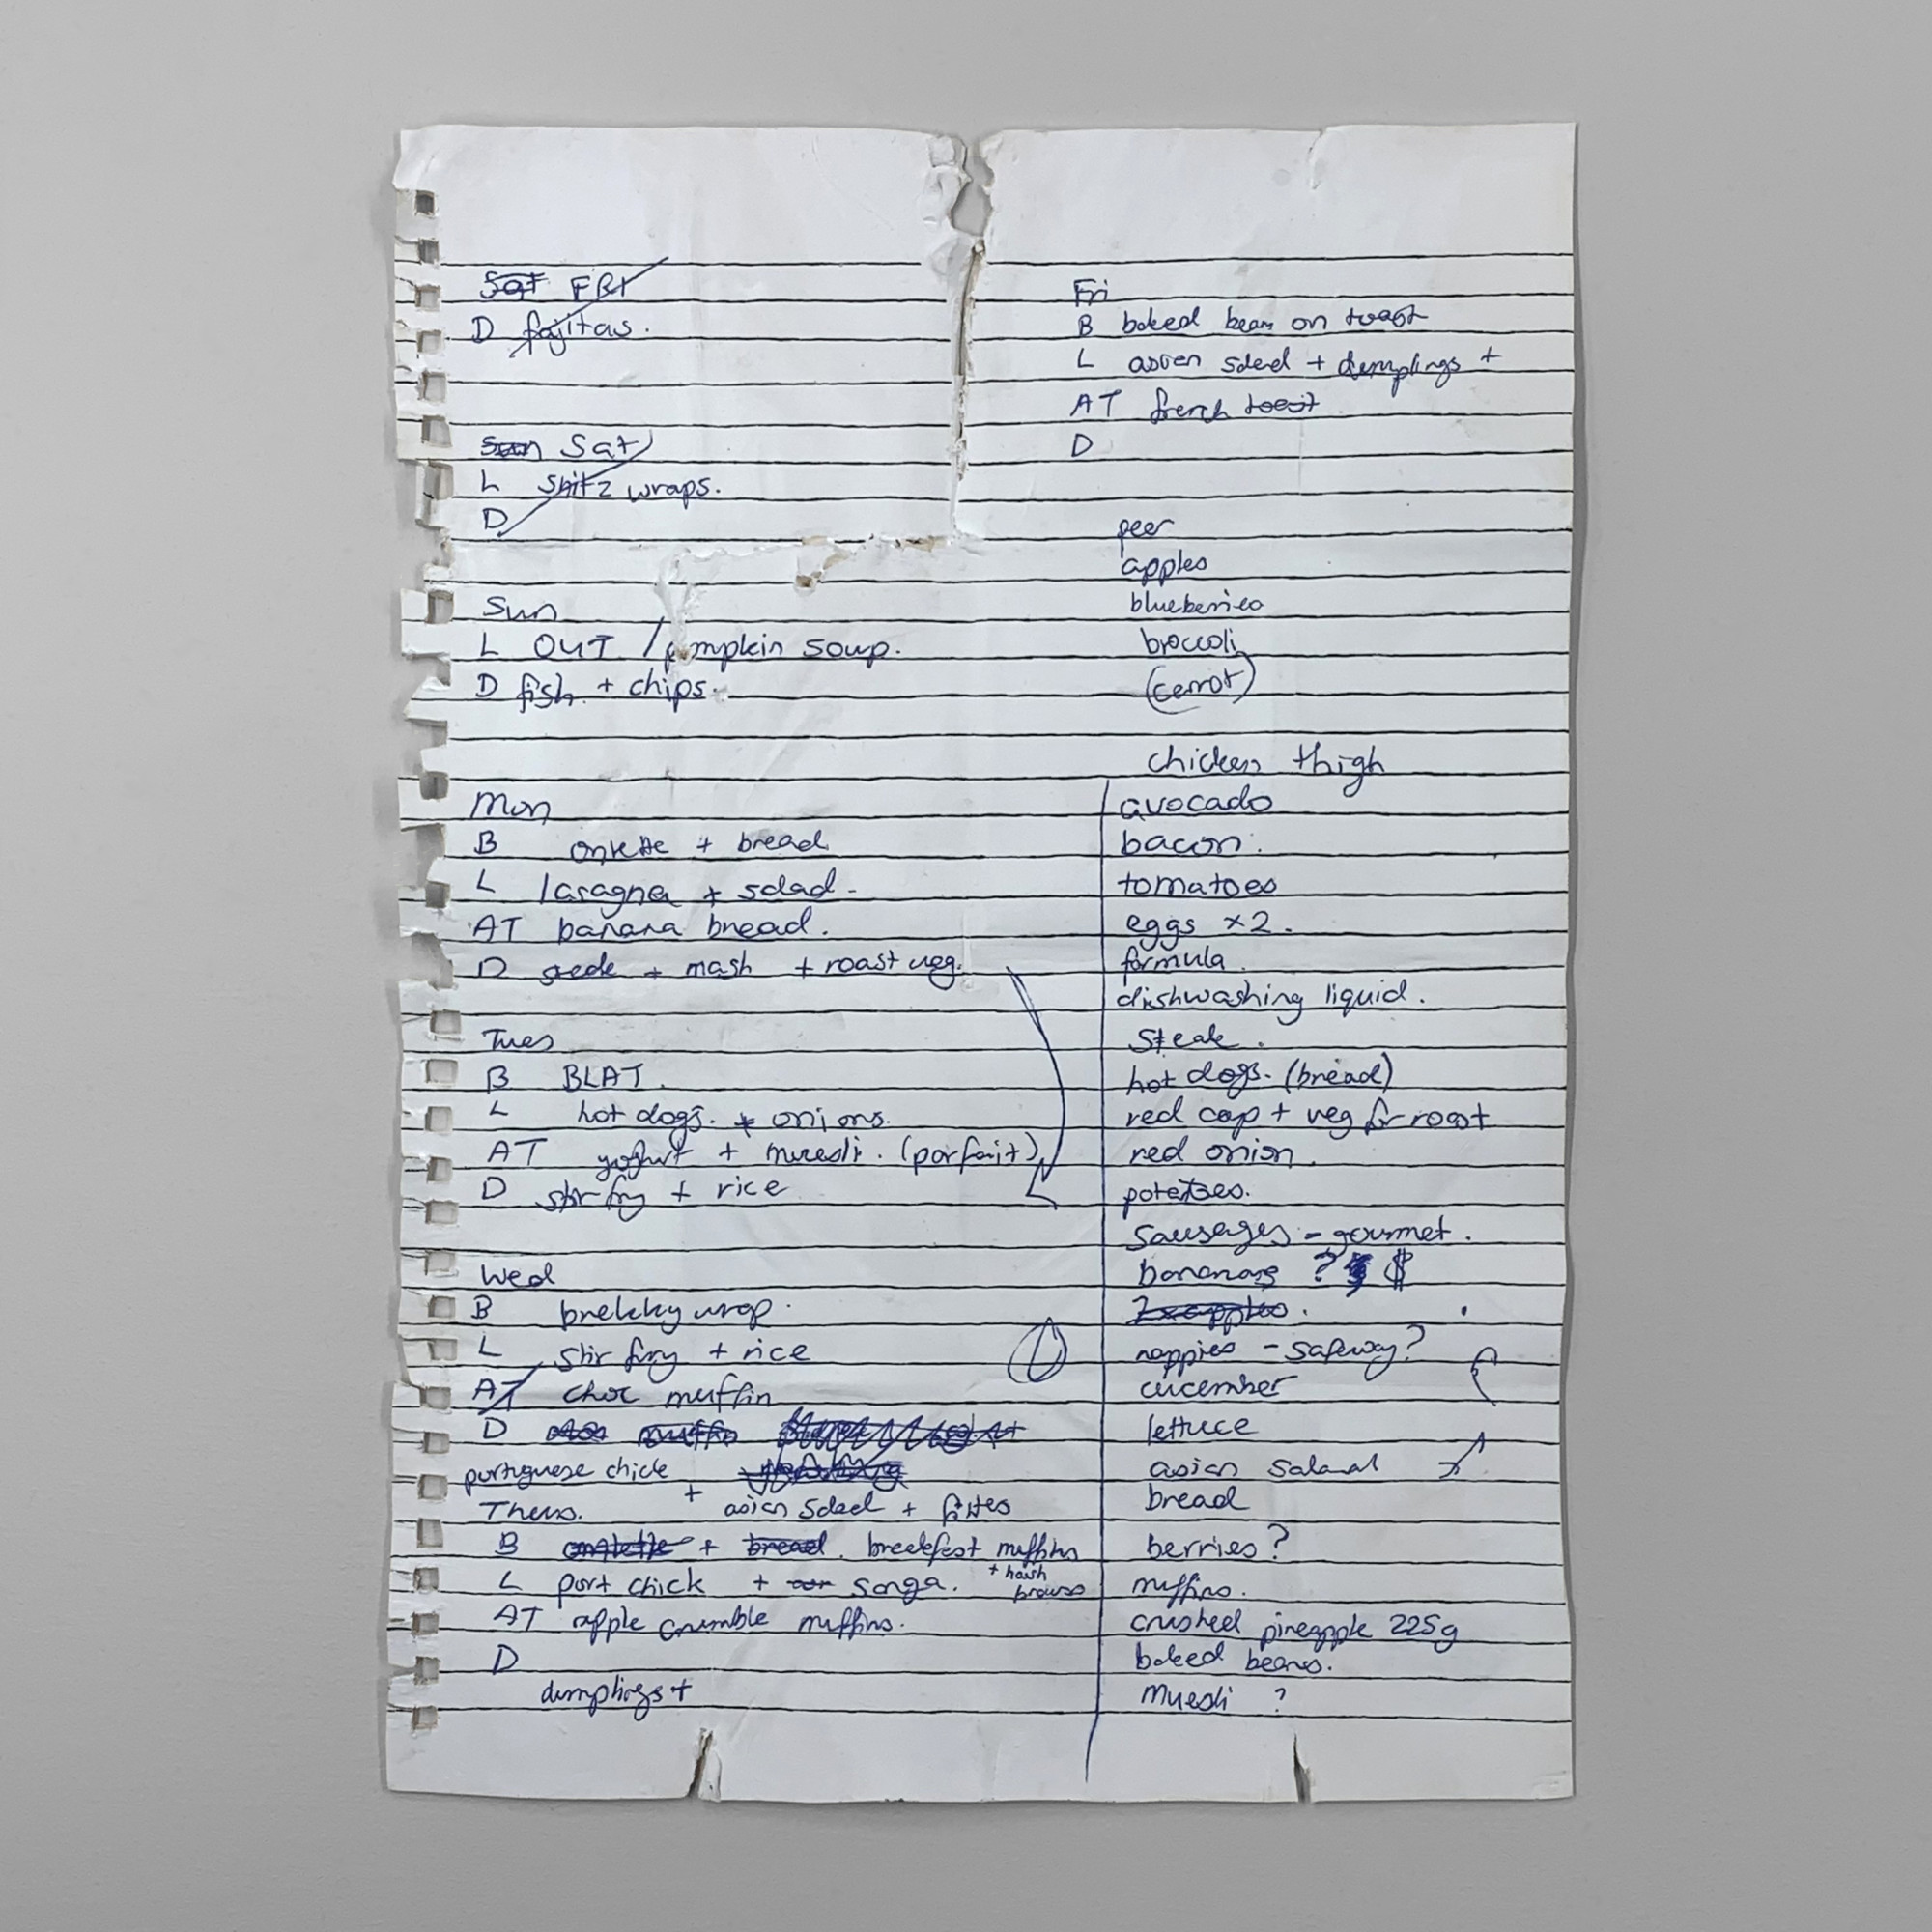 Sat FRI
D fajitas.
Sun Sat
L Snitz wraps.
D
Sun
L OUT / pumpkin soup.
D fish + chips.
Mon
B + bread
L lasagna + salad -
AT banana bread.
D steak + mash + roast veg.
Tues
B BLAT.
L hot dogs. + onions.
AT yoghurt + muesli. (parfait)
D stir fry + rice
Wed
B brekky wrap.
L stir fry + rice
AT choc muffin
D choc muffin
portuguese chick
+ asian salad + frites
Thurs.
B omelette + bread. breakfast muffins
+ hash browns
L port chick + sanga.
AT apple crumble muffins.
D
dumplings +
Fri
B baked beans on toast
L asian salad + dumplings +
AT french toast
D
pear
apples
blueberries
broccoli
(carrot)
chicken thigh
avocado
bacon.
tomatoes
eggs x2.
formula.
dishwashing liquid.
steak.
hot dogs. (bread)
red cap + veg for roast
red onion.
potatoes.
Sausages - gourmet.
bananas ? $
2 x apples.
nappies - safeway?
cucumber
lettuce
asian salad
bread
berries?
muffins.
crushed pineapple 225g
baked beans.
Muesli ?